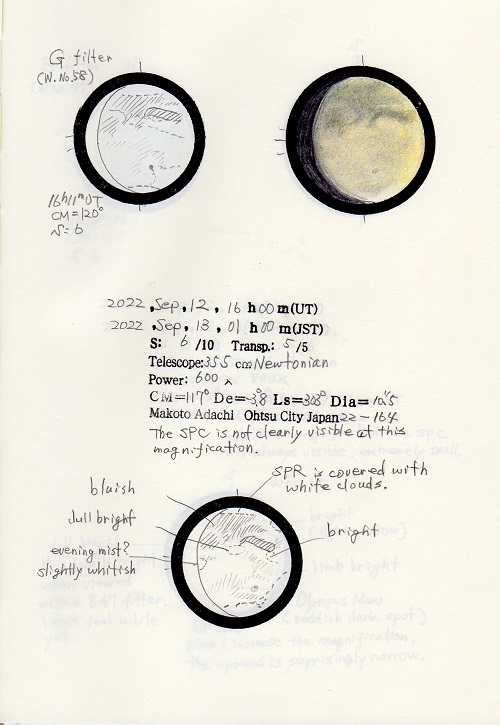 G filter
(W.No.58)
16h11mUT
CM=120°
S=6
2022 ,Sep, 12, 16 h 00 m(UT)
2022 ,Sep, 13, 01 h 00 m(JST)
S: 6 /10 Transp.: 5 /5
Telescope: 355 cm Newtonian
Power: 600 ×
CM=117° De=-3.8° Ls=303° Dia=10".5
Makoto Adachi Ohtsu City Japan 22-164
The SPC is not clearly visible at this
magnification.
SPR is covered with
white clouds.
bluish
dull bright
evening mist?
slightly whitish
bright